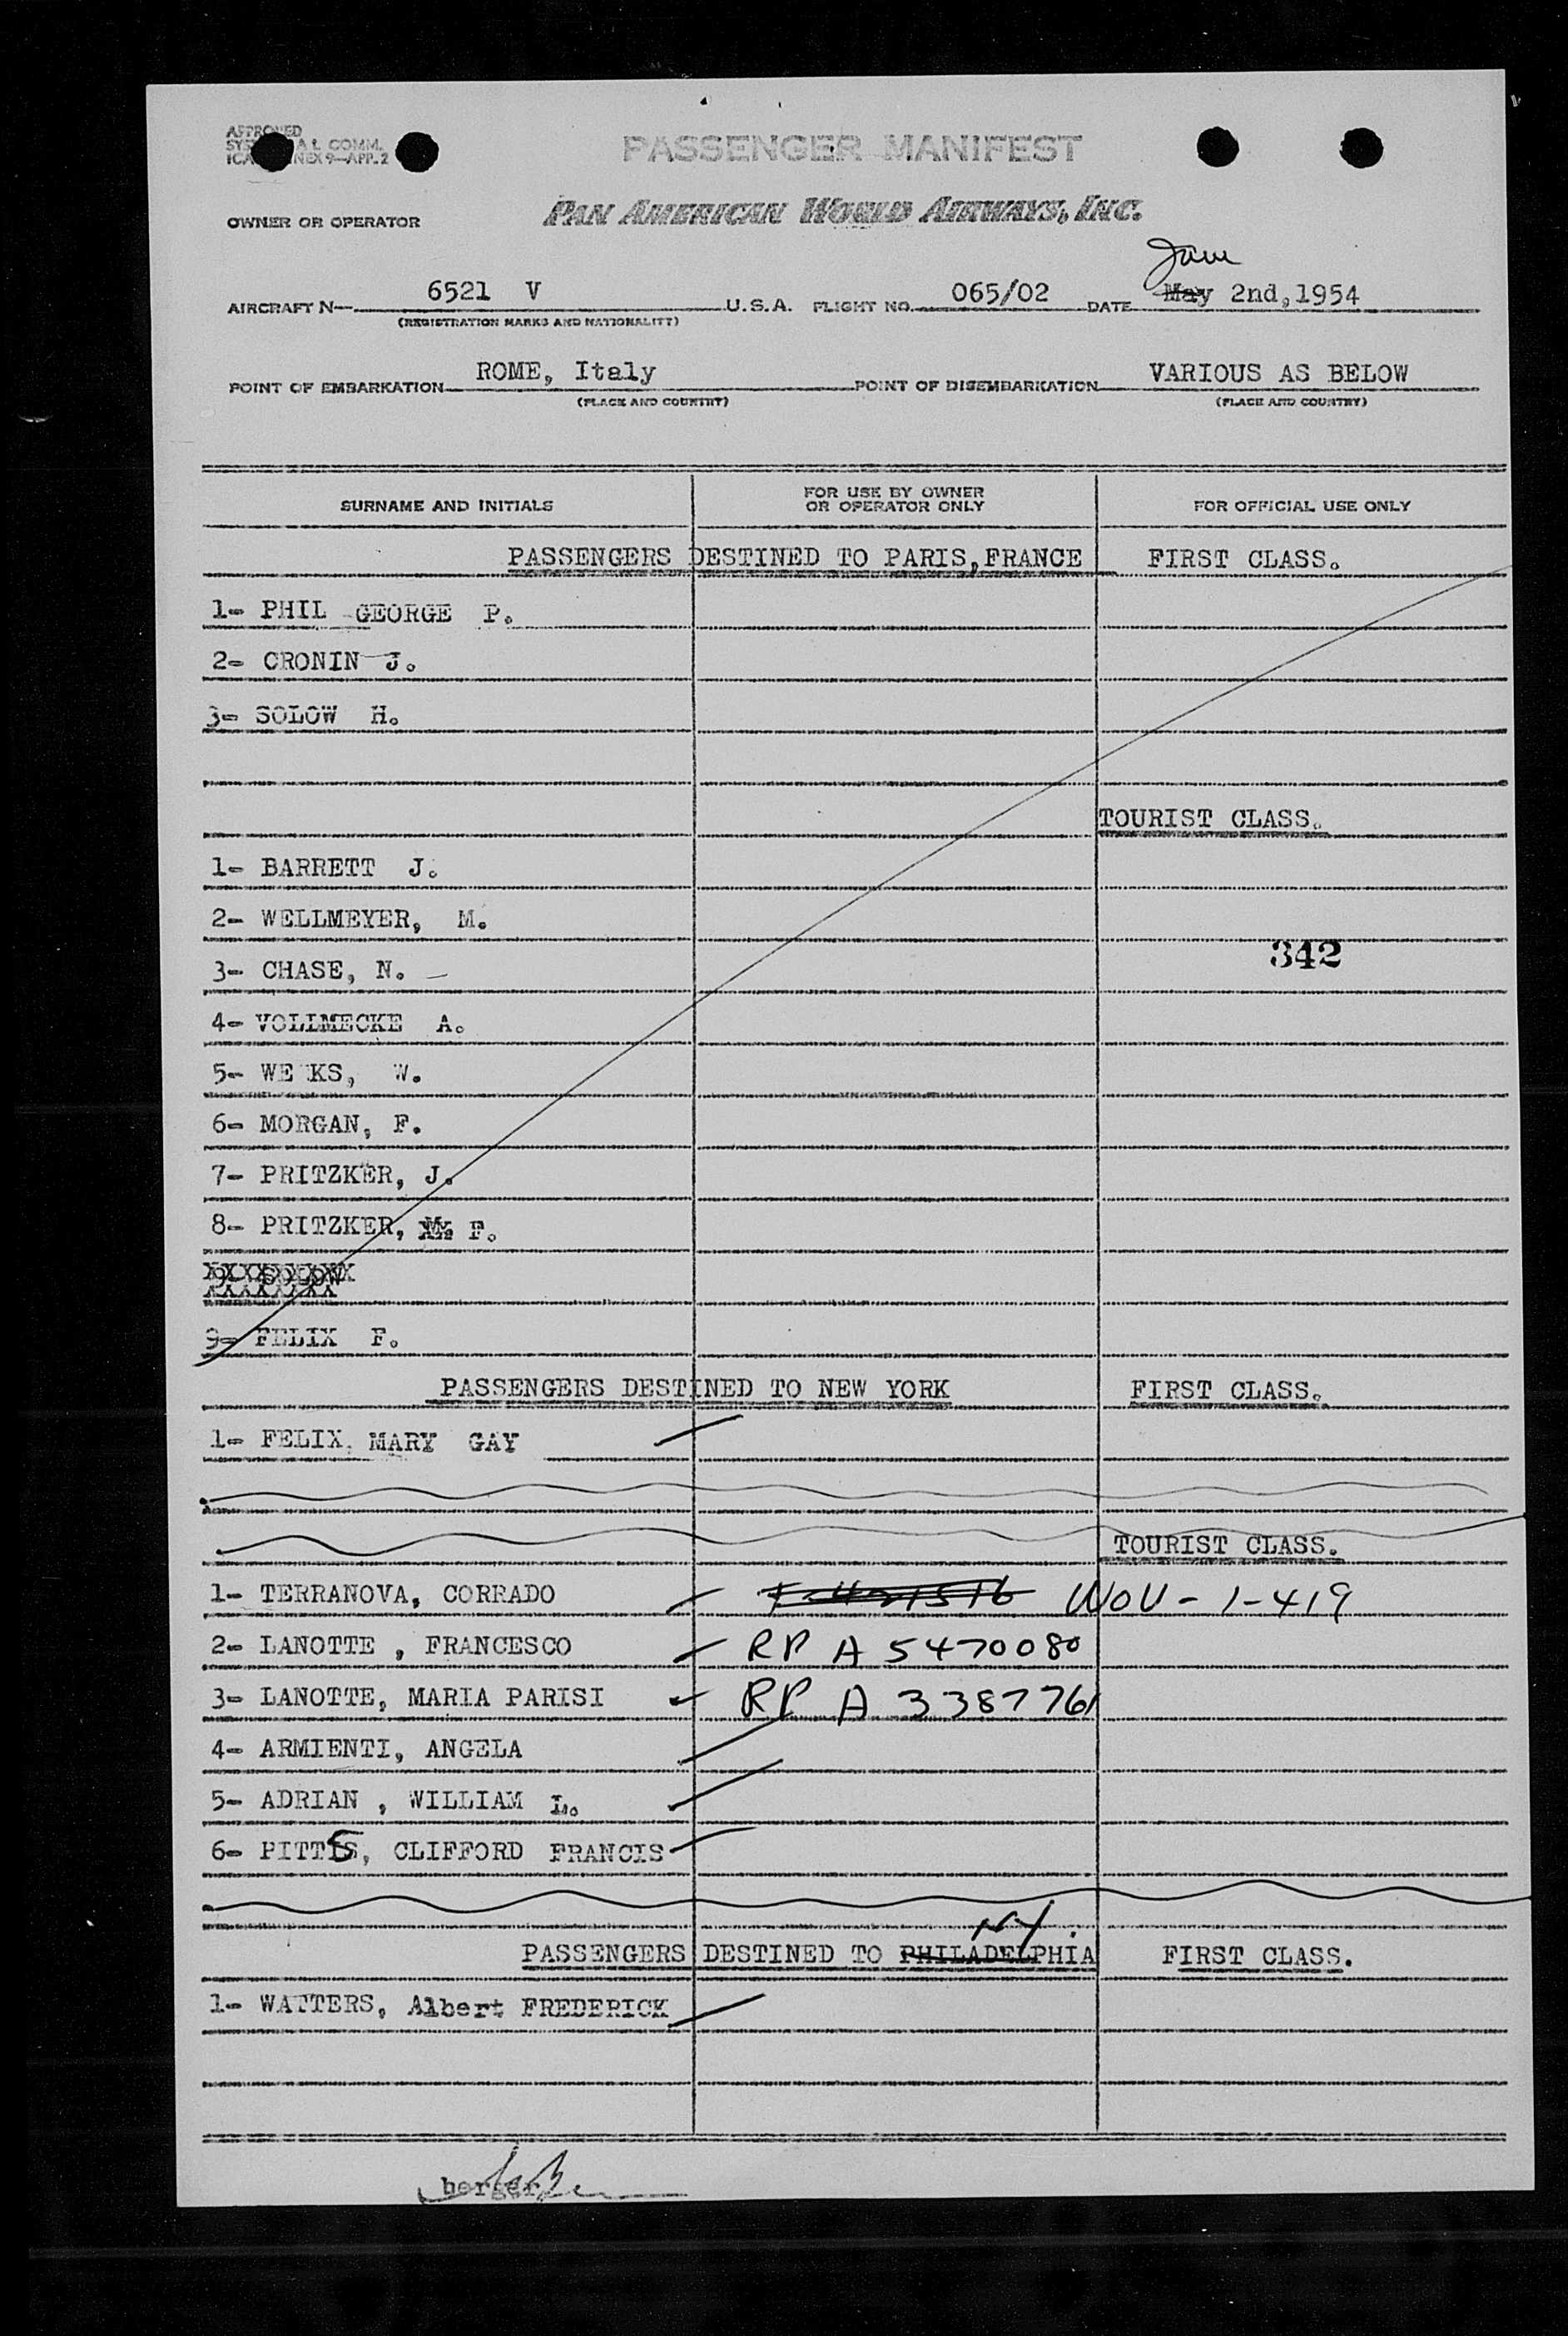 APPROVED
SYS AL COMM.
ICA NEX 9—APP. 2
PASSENGER MANIFEST
OWNER OR OPERATOR PAN AMERICAN WORLD AIRWAYS, INC.
AIRCRAFT N— 6521 V U.S.A. FLIGHT NO. 065/02 DATE May 2nd,1954
(REGISTRATION MARKS AND NATIONALITY)
POINT OF EMBARKATION ROME, Italy POINT OF DISEMBARKATION VARIOUS AS BELOW
(PLACE AND COUNTRY) (PLACE AND COUNTRY)
SURNAME AND INITIALS FOR USE BY OWNER OR OPERATOR ONLY FOR OFFICIAL USE ONLY
PASSENGERS DESTINED TO PARIS,FRANCE FIRST CLASS.
1- PHIL GEORGE P.
2- CRONIN J.
3- SOLOW H.
TOURIST CLASS.
1- BARRETT J.
2- WELLMEYER, M.
342
3- CHASE, N.
4- VOLLMECKE A.
5- WE KS, W.
6- MORGAN, F.
7- PRITZKER, J.
8- PRITZKER, F.
9- FELIX F.
PASSENGERS DESTINED TO NEW YORK FIRST CLASS.
1- FELIX, MARY GAY
TOURIST CLASS.
1- TERRANOVA, CORRADO WOU - 1-419
2- LANOTTE , FRANCESCO RP A 5470080
3- LANOTTE, MARIA PARISI RP A 3387761
4- ARMIENTI, ANGELA
5- ADRIAN , WILLIAM L.
6- PITTS, CLIFFORD FRANCIS
NY.
PASSENGERS DESTINED TO PHILADELPHIA FIRST CLASS.
1- WATTERS, Albert FREDERICK
berger